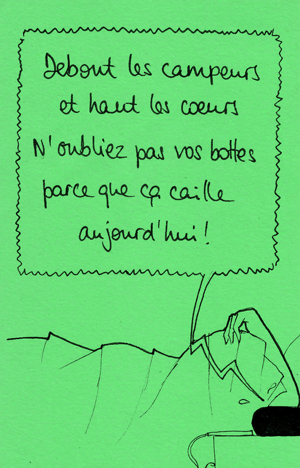 Debout les campeurs
et haut les cœurs
N'oubliez pas vos bottes
parce que ça caille
aujourd'hui!